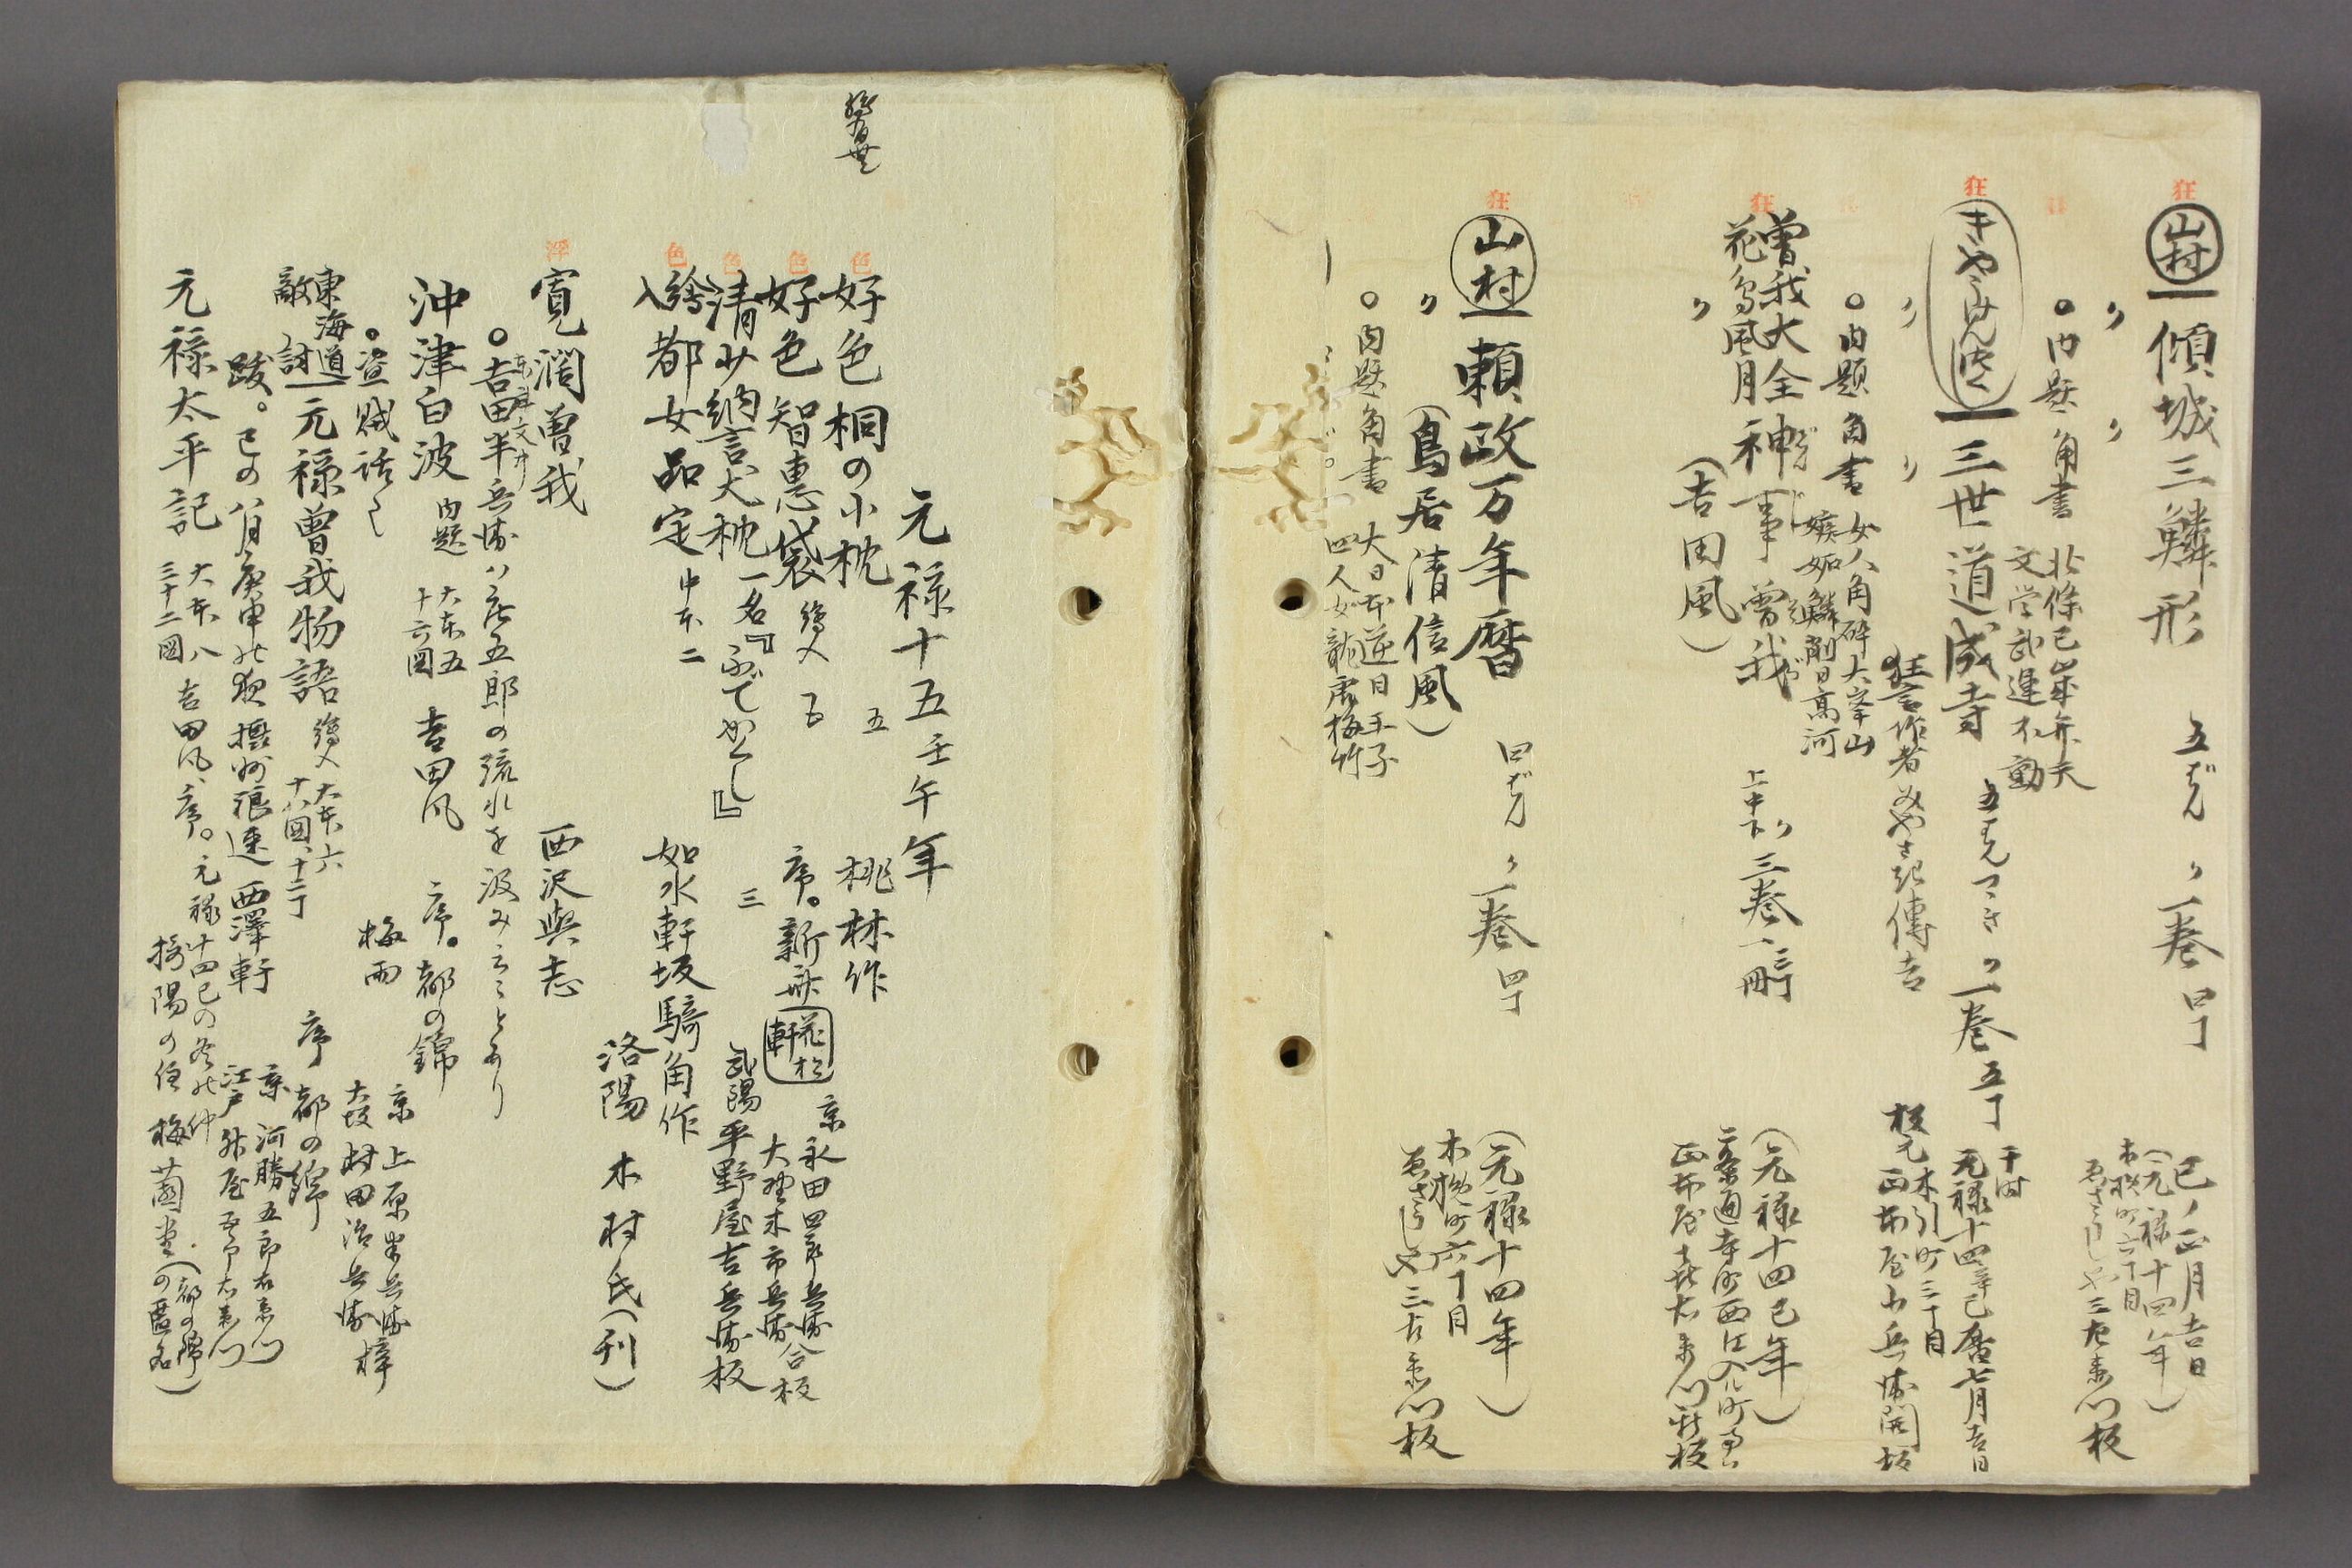 狂
山村 傾城三鱗形 五ばん 〃一巻 四丁
巳ノ正月吉日
(元禄十四年)
木挽町六丁目
三左衛門板
〃 〃
○内題角書
北條巳歳弁天
文学武運不動
狂
きやうげん 三世道成寺 五ばんつゞき 〃一巻 五丁
于時
元禄十四辛巳暦七月吉日
木引町三丁目
板元 正本屋小兵衛開板
〃 〃
狂言作者 みやざき傳吉
○内題角書
女人角碎大峯山
嫉妬鱗削日高河
狂
曽我大全
花鳥風月 神事曽我 上中下〃 三巻一冊
(元禄十四巳年)
二条通寺町西江入ル町
正本屋喜右衛門新板
〃
(吉田風)
狂
山村 頼政万年暦 四ばん 〃一巻 四丁
(元禄十四年)
木挽町六丁目
三左衛門板
〃
(鳥居清信風)
○内題角書
大日本逆日王子
四人女龍虎梅竹
元禄十五壬午年
色
好色桐の小枕 五 桃林作
色
好色智恵袋 繪入 五 序。新
京 永田四郎兵衛
大野木市兵衛 合板
色
清少納言犬枕 一名『ふでかくし』 三
武陽 平野屋吉兵衛板
色
繪入 都女品定 中本二 如水軒坂騎角作
洛陽 木村氏(刊)
浮
寛濶曽我 西沢與志
○吉田半兵衛ハ庄五郎の流れを汲みしことあり
沖津白波 内題 大本五
十六図 吉田風 序。都の錦
京 上原 兵衛
大坂 村田治兵衛 梓
○盗賊話し 梅雨
東海道
敵討 元禄曽我物語 繪入 大本六
十八図、十二丁
序 都の錦
京 河勝五郎右衛門
江戸 屋五郎右衛門
跋。巳の八月庚申の夜摂州浪速 西澤軒
元禄太平記 大本八
三十二図 吉田風、序。元禄十四巳の冬の仲
摂陽の住 梅薗堂(都の錦の匿名)